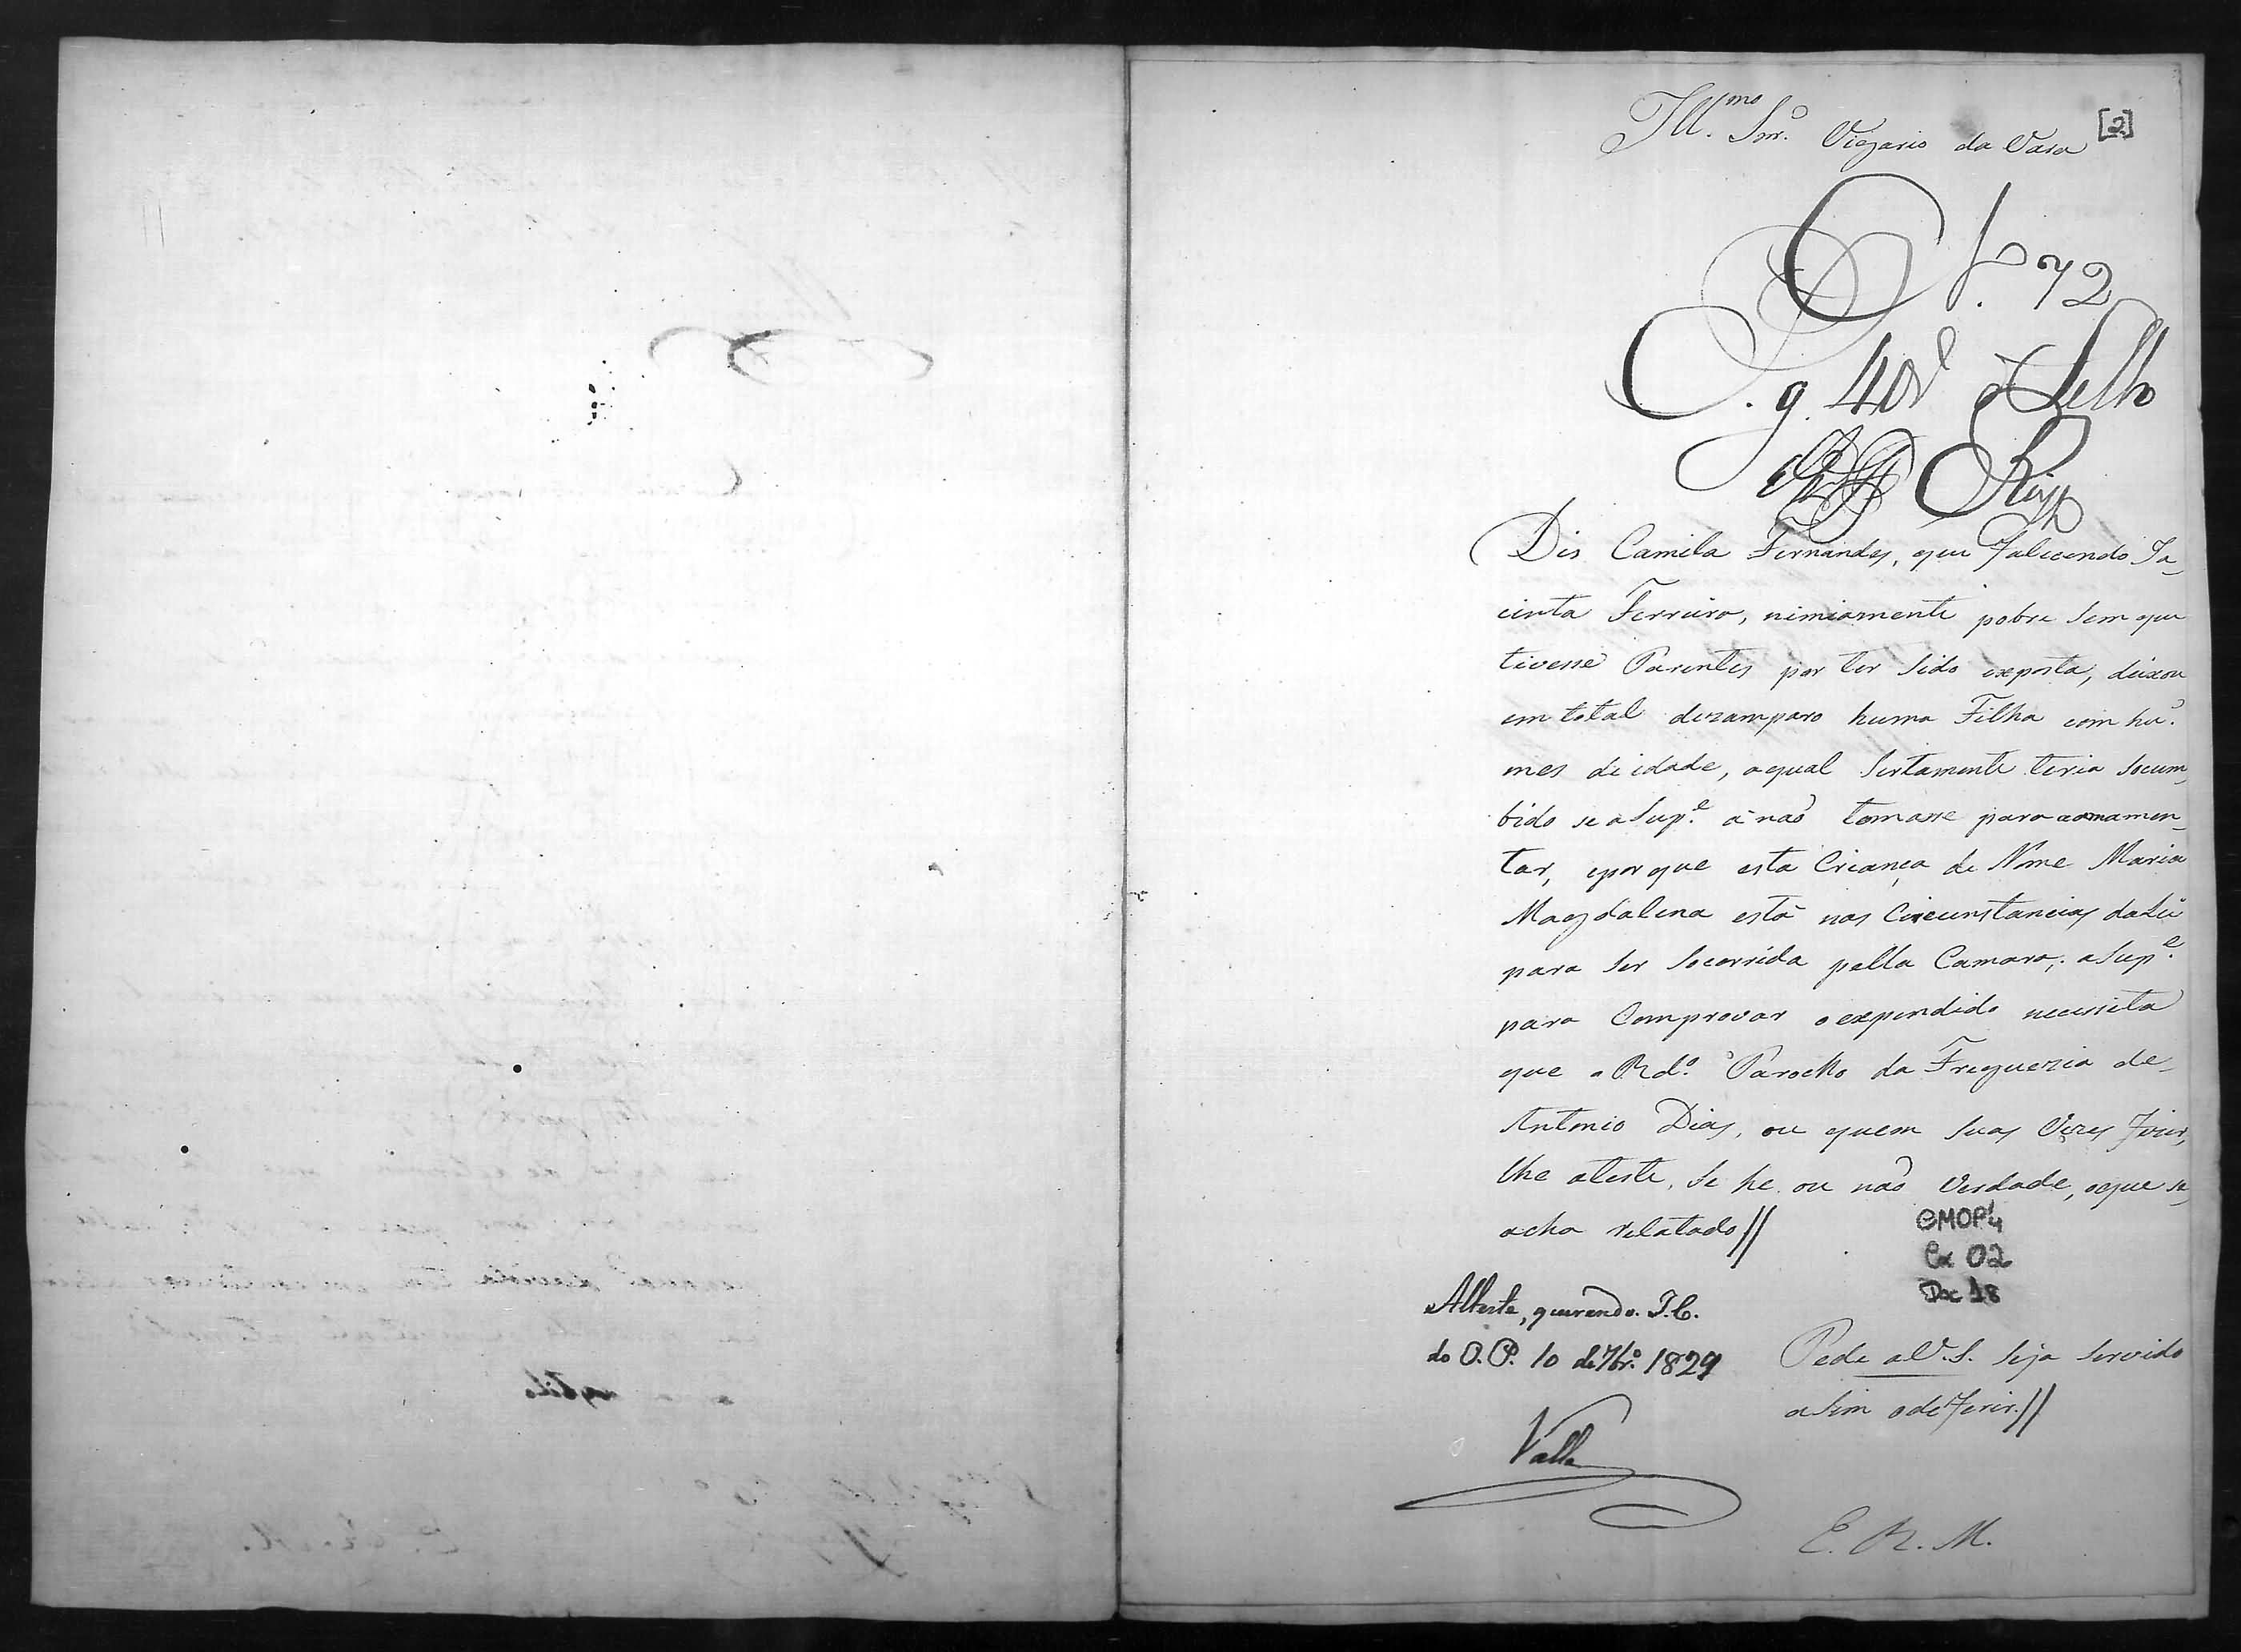 Ill.mo Snr.o Vigario da Vara
[2]
f. 72
P. g. 40 d Sello
Dis Camila Fernandes, que falecendo Ja_
cinta Ferreira, nimiamente pobre sem que
tivesse Parentes por ter sido exposta, deixou
em total dezamparo huma Filha com hu.
mes de idade, aqual sertamente teria socum_
bido se a Sup.e a naõ tomasse para aamamen_
tar, eporque esta Criança de Nome Maria
Magdalena está nas Circunstancias da Lei
para ser socorrida pella Camara; a Sup.e
para Comprovar o expendido necessita
que o Rd.o Parocho da Freguezia de_
Antonio Dias, ou quem suas Vezes fizer,
lhe ateste, se he ou naõ Verdade, oque se_
acha relatado//
CMOP 4
Cx 02
Doc 18
Atteste, querendo. I.C.
do O.P. 10 de 7br.o 1829
Valle
Pede a V.S. seja servido
asim o deferir.//
E. R. M.